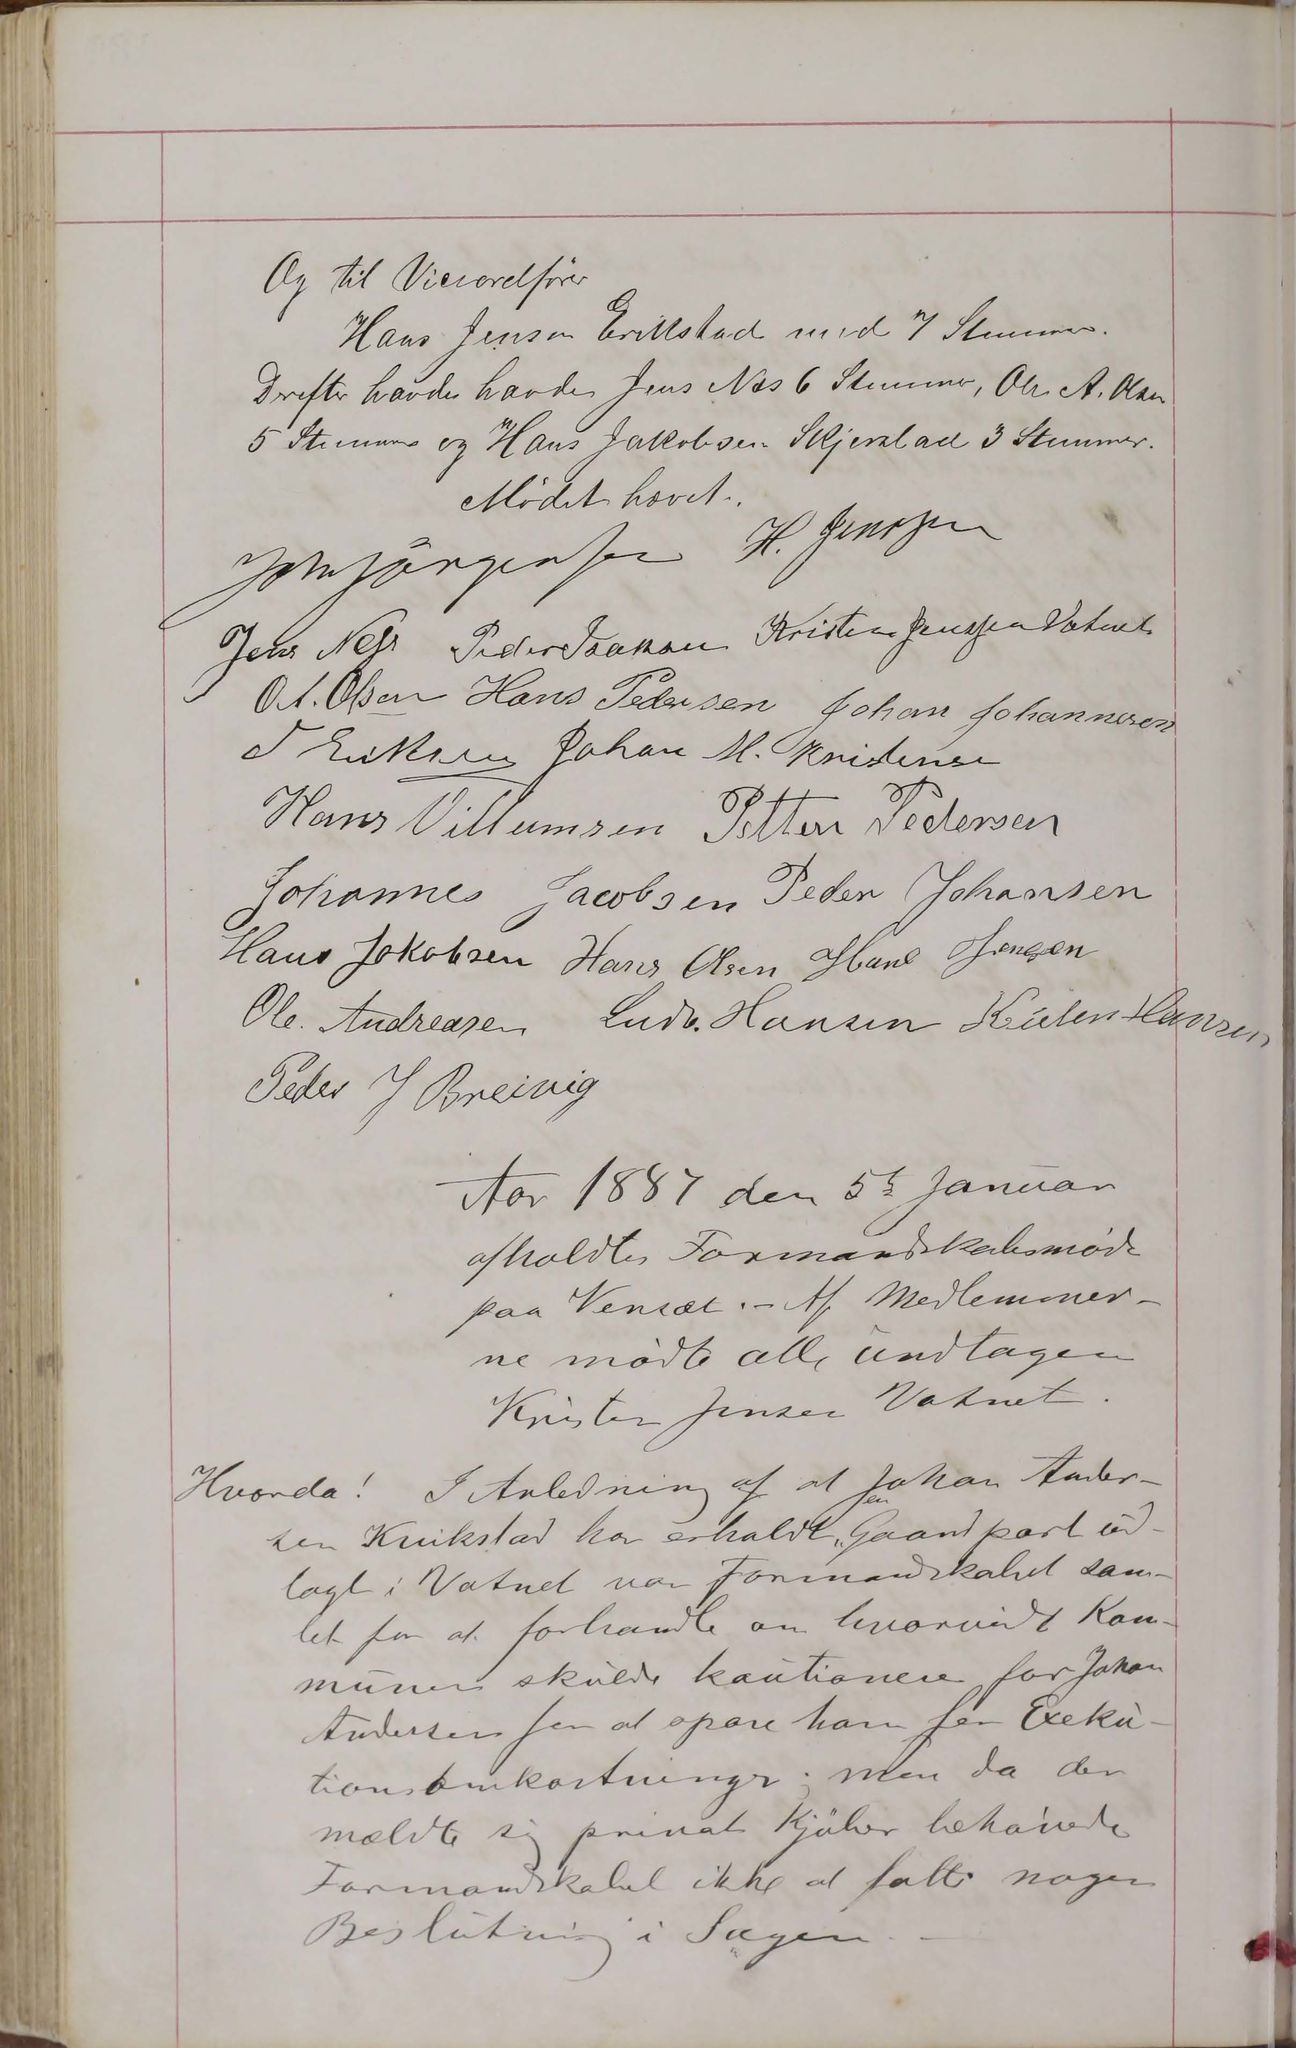 Og til Viceordfører
Hans Jensen Erikstad med 7 Stemmer.
Derefter havde havde Jens Nes 6 Stemmer, Ole A. Olsen
5 Stemmer og Hans Jakobsen Skjerstad 3 Stemmer.
Mödet hævet.
John Jörgensen H. Jenssen
Jens Ness Peder Isaksen Kristen Jenssen Vatnet
O. A. Olsen Hans Pedersen Johan Johannesen
Eriksen Johan M. Kristensen
Hans Villumsen Petter Pedersen
Johannes Jacobsen Peder Johansen
Hans Jakobsen Hans Olsen Hans Jensen
Ole. Andreasen Ludv. Hansen Hansen
Peder J Breivig
Aar 1887 den 5te Januar
afholdtes Formandskabsmöde
paa Venset. - Af Medlemmer-
ne mödte alle undtagen
Kristen Jensen Vatnet.
Hvorda! I Anledning af at Johan Ander-
sen Kvikstad har erholdt en Gaardpart ud-
lagt i Vatnet var Formandskabet sam-
let for at forhandle om hvorvidt Kom-
munen skulde kautionere for Johan
Andersen for at spare ham for Exeku-
tionsomkostninger; men da der
mældte sig privat Kjöber behövede
Formandskabet ikke at fatte nogen
Beslutning i Sagen. -